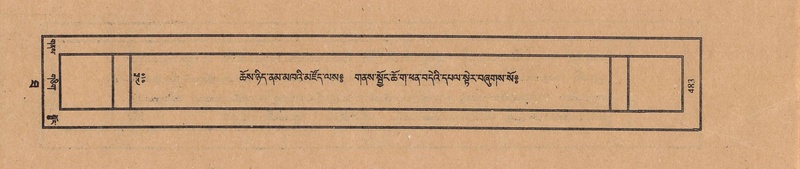 ཆོས་ཉིད་ནམ་མཁའི་མཛོད་ལས༔ གནས་སྦྱོང་ཆོ་ག་ཕན་བདེའི་དཔལ་སྟེར་བཞུགས་སོ༔
483